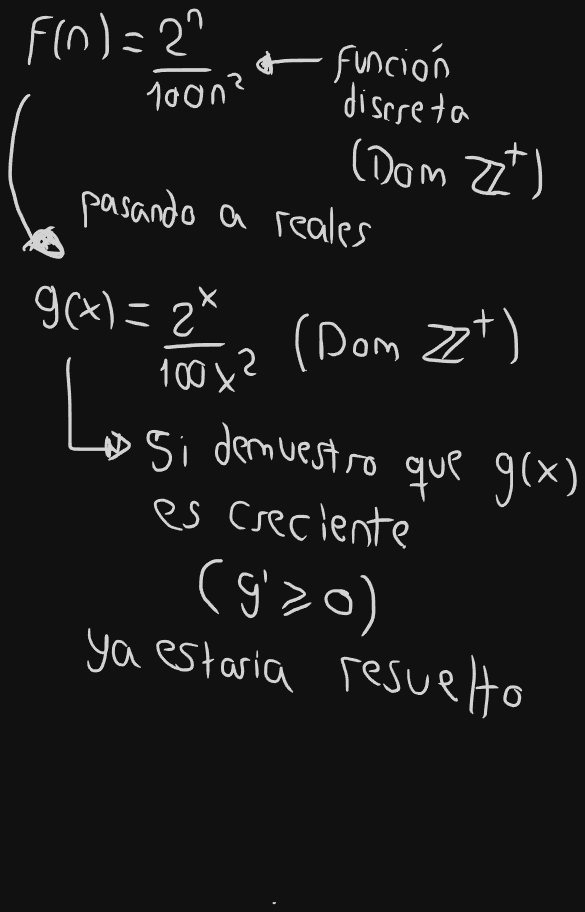 F(n) = 2^n / 100n² ← función
discreta
(Dom ℤ⁺)
pasando a reales
g(x) = 2^x / 100x² (Dom ℤ⁺)
Si demuestro que g(x)
es creciente
(g' ⩾ 0)
ya estaria resuelto